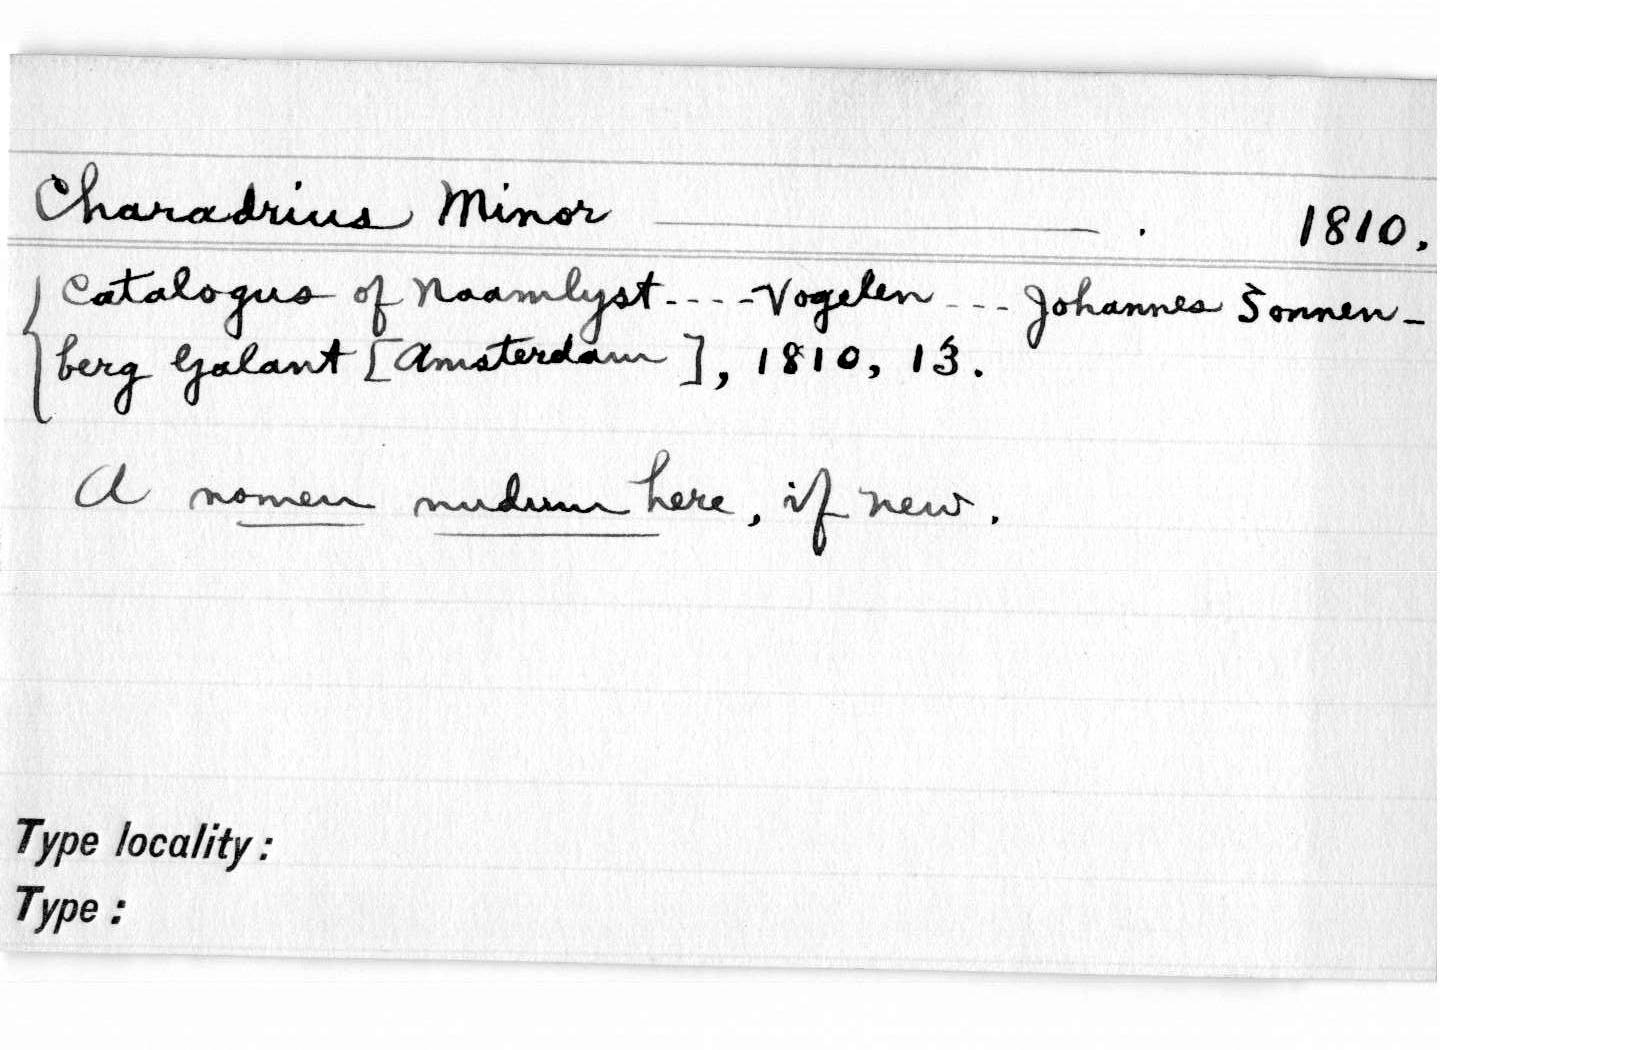 Charadrius Minor ———. 1810.
Catalogus of Naamlyst----Vogelen---Johannes Sonnen-
berg Galant [Amsterdam], 1810, 13.
A nomen nudum here, if new.
Type locality:
Type: